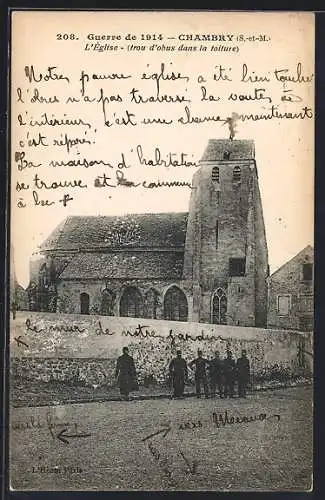 208. Guerre de 1914 — CHAMBRY (S.-et-M.)
L'Église - (trou d'obus dans la toiture)
Notre pauvre église a été bien touchée
l'obus n'a pas traversé la voute, à
l'intérieur, c'est une chance maintenant
c'est réparé.
La maison d'habitation
se trouve et la commune
à
le mur de notre jardin
vers Meaux